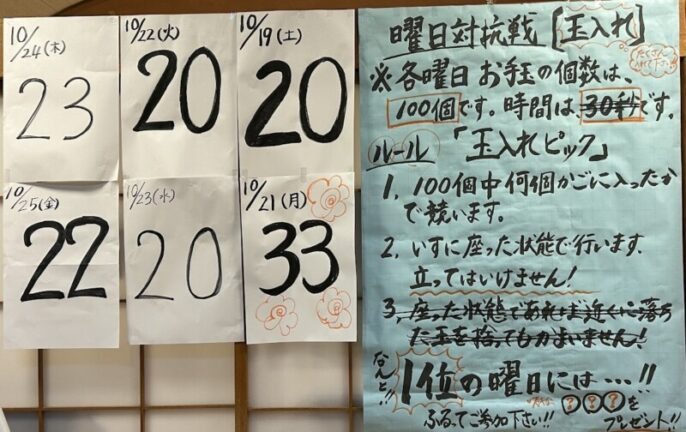 10/24(木)
23
10/22(火)
20
10/19(土)
20
10/25(金)
22
10/23(水)
20
10/21(月)
33
曜日対抗戦[玉入れ]
たくさん
入れて下さい
※各曜日お手玉の個数は、
100個です。時間は30秒です。
ルール「玉入れピック」
1, 100個中何個かごに入ったか
で競います。
2. いすに座った状態で行います。
立ってはいけません!
3, 座った状態であれば近くに落ち
た玉を拾ってもかまいません!
なんと!!
1位の曜日には…!!
???を
ふるってご参加下さい!!
プレゼント!!